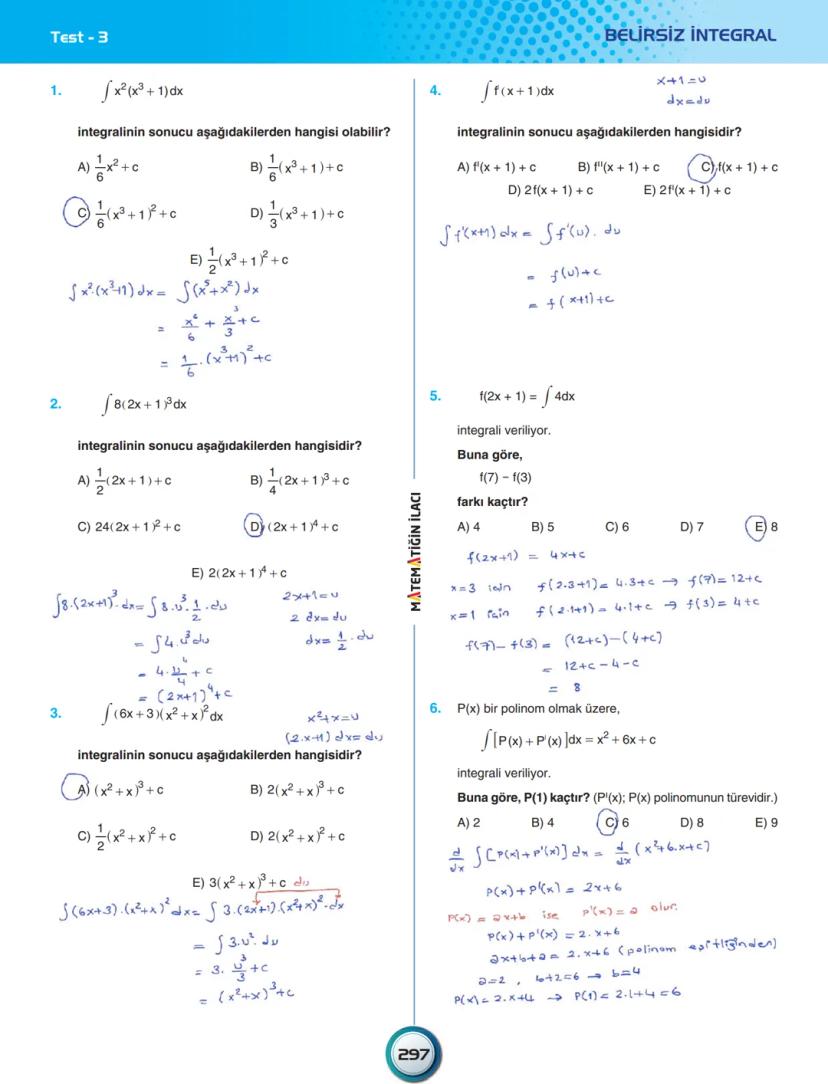 Test - 3
BELİRSİZ İNTEGRAL
1. ∫ x²(x³ + 1)dx
integralinin sonucu aşağıdakilerden hangisi olabilir?
A) 1/6 x² + c B) 1/6 (x³ + 1) + c
C) 1/6 (x³ + 1)² + c D) 1/3 (x³ + 1) + c
E) 1/2 (x³ + 1)² + c
∫ x²·(x³+1) dx = ∫(x⁵+x²) dx
= x⁶/6 + x³/3 + c
= 1/6 · (x³+1)² + c
2. ∫ 8(2x + 1)³dx
integralinin sonucu aşağıdakilerden hangisidir?
A) 1/2 (2x + 1) + c B) 1/4 (2x + 1)³ + c
C) 24(2x + 1)² + c D) (2x + 1)⁴ + c
E) 2(2x + 1)⁴ + c
∫8·(2x+1)³·dx = ∫8·u³·1/2·du
2x+1=u
2 dx=du
dx= 1/2 · du
= ∫4·u³du
= 4·u⁴/4 + c
= (2x+1)⁴+c
3. ∫ (6x + 3)(x² + x)²dx
x²+x=u
(2·x+1) dx= du
integralinin sonucu aşağıdakilerden hangisidir?
A) (x² + x)³ + c B) 2(x² + x)³ + c
C) 1/2 (x² + x)² + c D) 2(x² + x)² + c
E) 3(x² + x)³ + c
du
∫(6x+3)·(x²+x)² dx = ∫ 3·(2x+1)·(x²+x)²·dx
= ∫3·u²·du
= 3· u³/3 + c
= (x²+x)³+c
4. ∫ f(x + 1)dx
x+1=u
dx=du
integralinin sonucu aşağıdakilerden hangisidir?
A) f'(x + 1) + c B) f''(x + 1) + c C) f(x + 1) + c
D) 2f(x + 1) + c E) 2f'(x + 1) + c
∫ f'(x+1) dx = ∫ f'(u). du
= f(u)+c
= f(x+1)+c
5. f(2x + 1) = ∫ 4dx
integrali veriliyor.
Buna göre,
f(7) − f(3)
farkı kaçtır?
A) 4 B) 5 C) 6 D) 7 E) 8
f(2x+1) = 4x+c
x=3 için f(2.3+1)= 4.3+c → f(7)= 12+c
x=1 için f(2.1+1)= 4.1+c → f(3)= 4+c
f(7)−f(3)= (12+c)−(4+c)
= 12+c−4−c
= 8
6. P(x) bir polinom olmak üzere,
∫ [P(x) + P'(x)]dx = x² + 6x + c
integrali veriliyor.
Buna göre, P(1) kaçtır? (P'(x); P(x) polinomunun türevidir.)
A) 2 B) 4 C) 6 D) 8 E) 9
d/dx ∫[P(x)+P'(x)] dx = d/dx (x²+6.x+c)
P(x)+P'(x) = 2x+6
P(x) = ax+b ise P'(x)= a olur.
P(x)+P'(x) = 2.x+6
ax+b+a= 2.x+6 (polinom eşitliğinden)
a=2 , b+2=6 → b=4
P(x)= 2.x+4 → P(1)= 2.1+4=6
MATEMATİĞİN İLACI
297